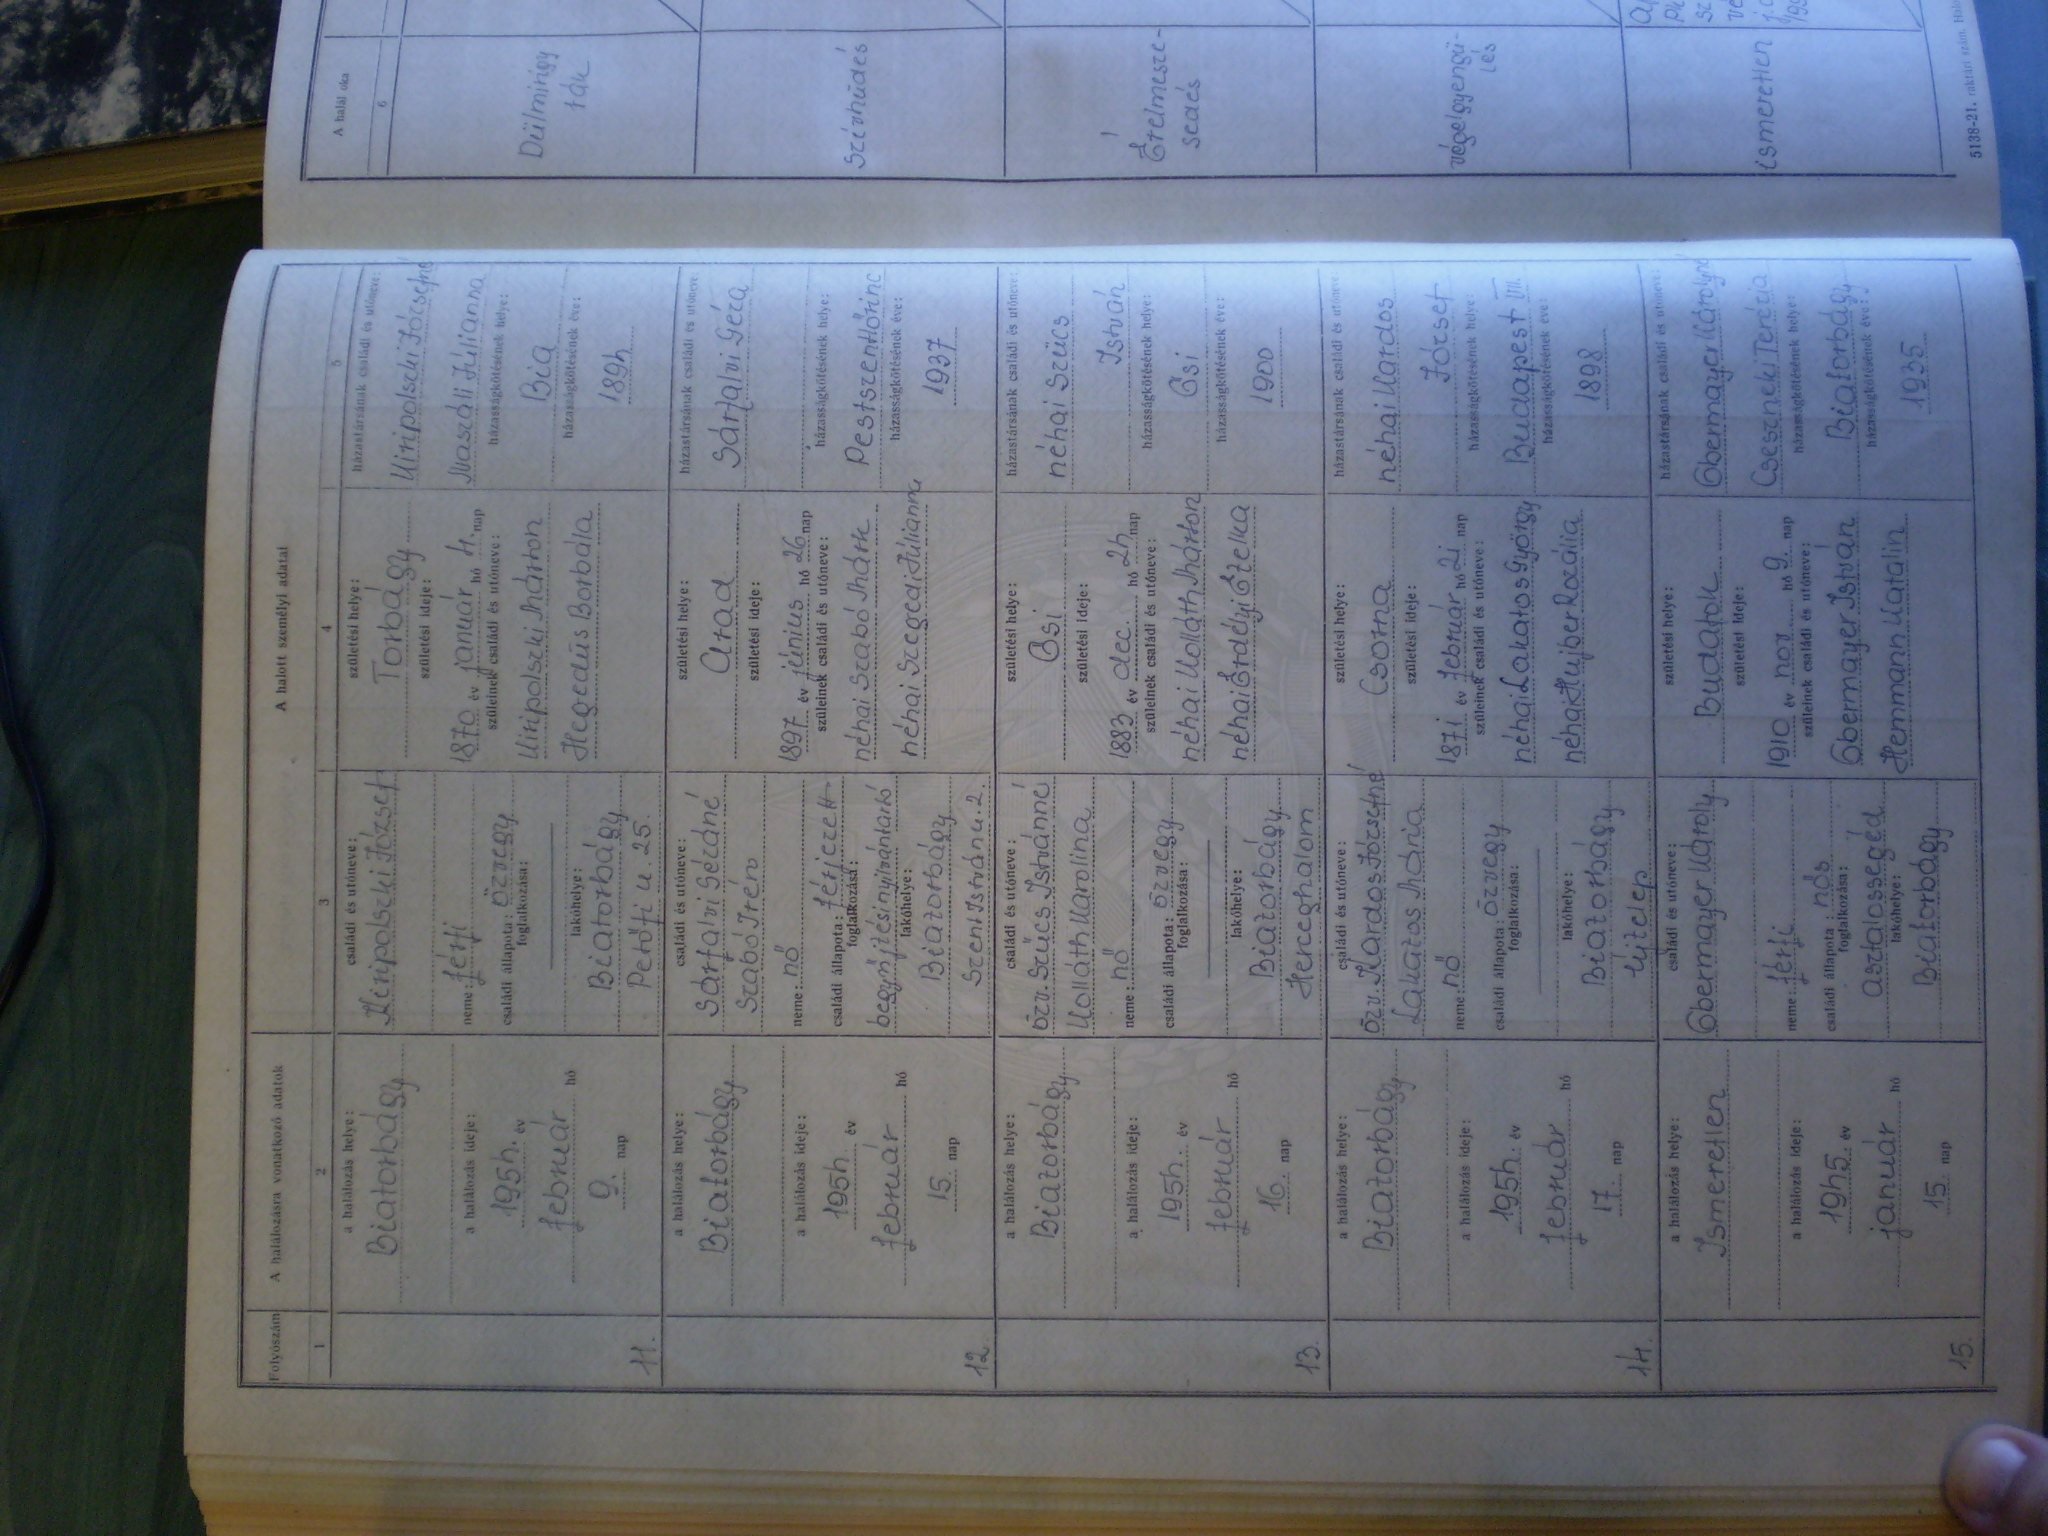 Folyószám
A halálozásra vonatkozó adatok
A halott személyi adatai
1
2
3
4
5
11.
a halálozás helye:
Biatorbágy
a halálozás ideje:
1954. év
február hó
9. nap
családi és utóneve:
József
neme: férfi
családi állapota: özvegy
foglalkozása:
lakóhelye:
Biatorbágy
Petőfi u. 25.
születési helye:
Torbágy
születési ideje:
1870 év január hó 4. nap
szüleinek családi és utóneve:
Kiripolszki Márton
Hegedűs Borbála
házastársának családi és utóneve:
Kiripolszki Józsefné
Julianna
házasságkötésének helye:
Bia
házasságkötésének éve:
1894
12
a halálozás helye:
Biatorbágy
a halálozás ideje:
1954. év
február hó
15. nap
családi és utóneve:
Sárfalvi Gézáné
Szabó Irén
neme: nő
családi állapota: férjezett
foglalkozása:
begyüjtési nyilvántartó
lakóhelye:
Biatorbágy
Szent István u. 2.
születési helye:
Arad
születési ideje:
1897 év június hó 26 nap
szüleinek családi és utóneve:
néhai Szabó Márk
néhai Szegedi Julianna
házastársának családi és utóneve:
Sárfalvi Géza
házasságkötésének helye:
Pestszentlőrinc
házasságkötésének éve:
1937
13.
a halálozás helye:
Biatorbágy
a halálozás ideje:
1954. év
február hó
16. nap
családi és utóneve:
özv. Szücs Istvánné
Kolláth Karolina
neme: nő
családi állapota: özvegy
foglalkozása:
lakóhelye:
Biatorbágy
Herceghalom
születési helye:
Ősi
születési ideje:
1883 év dec. hó 24 nap
szüleinek családi és utóneve:
néhai Kolláth Márton
néhai Erdélyi Etelka
házastársának családi és utóneve:
néhai Szücs
István
házasságkötésének helye:
Ősi
házasságkötésének éve:
1900
14.
a halálozás helye:
Biatorbágy
a halálozás ideje:
1954. év
február hó
17 nap
családi és utóneve:
özv. Kardos Józsefné
Lakatos Mária
neme: nő
családi állapota: özvegy
foglalkozása:
lakóhelye:
Biatorbágy
Ujtelep
születési helye:
Csorna
születési ideje:
1871 év február hó 21 nap
szüleinek családi és utóneve:
néhai Lakatos György
néhai Hujber Rozália
házastársának családi és utóneve:
néhai Kardos
József
házasságkötésének helye:
Budapest
házasságkötésének éve:
1898
15.
a halálozás helye:
Ismeretlen
a halálozás ideje:
1945. év
január hó
15 nap
családi és utóneve:
Obermayer Károly
neme: férfi
családi állapota: nős
foglalkozása:
asztalossegéd
lakóhelye:
Biatorbágy
születési helye:
Budafok
születési ideje:
1910 év nov hó 9. nap
szüleinek családi és utóneve:
Obermayer István
Hemmann Katalin
házastársának családi és utóneve:
Obermayer Károlyné
Cseszneki Terézia
házasságkötésének helye:
Biatorbágy
házasságkötésének éve:
1935
A halál oka
6
Dülmirigy
rák
Szívhüdés
Érelmesze-
sedés
végelgyengü-
lés
ismeretlen
5138-21. raktári szám.